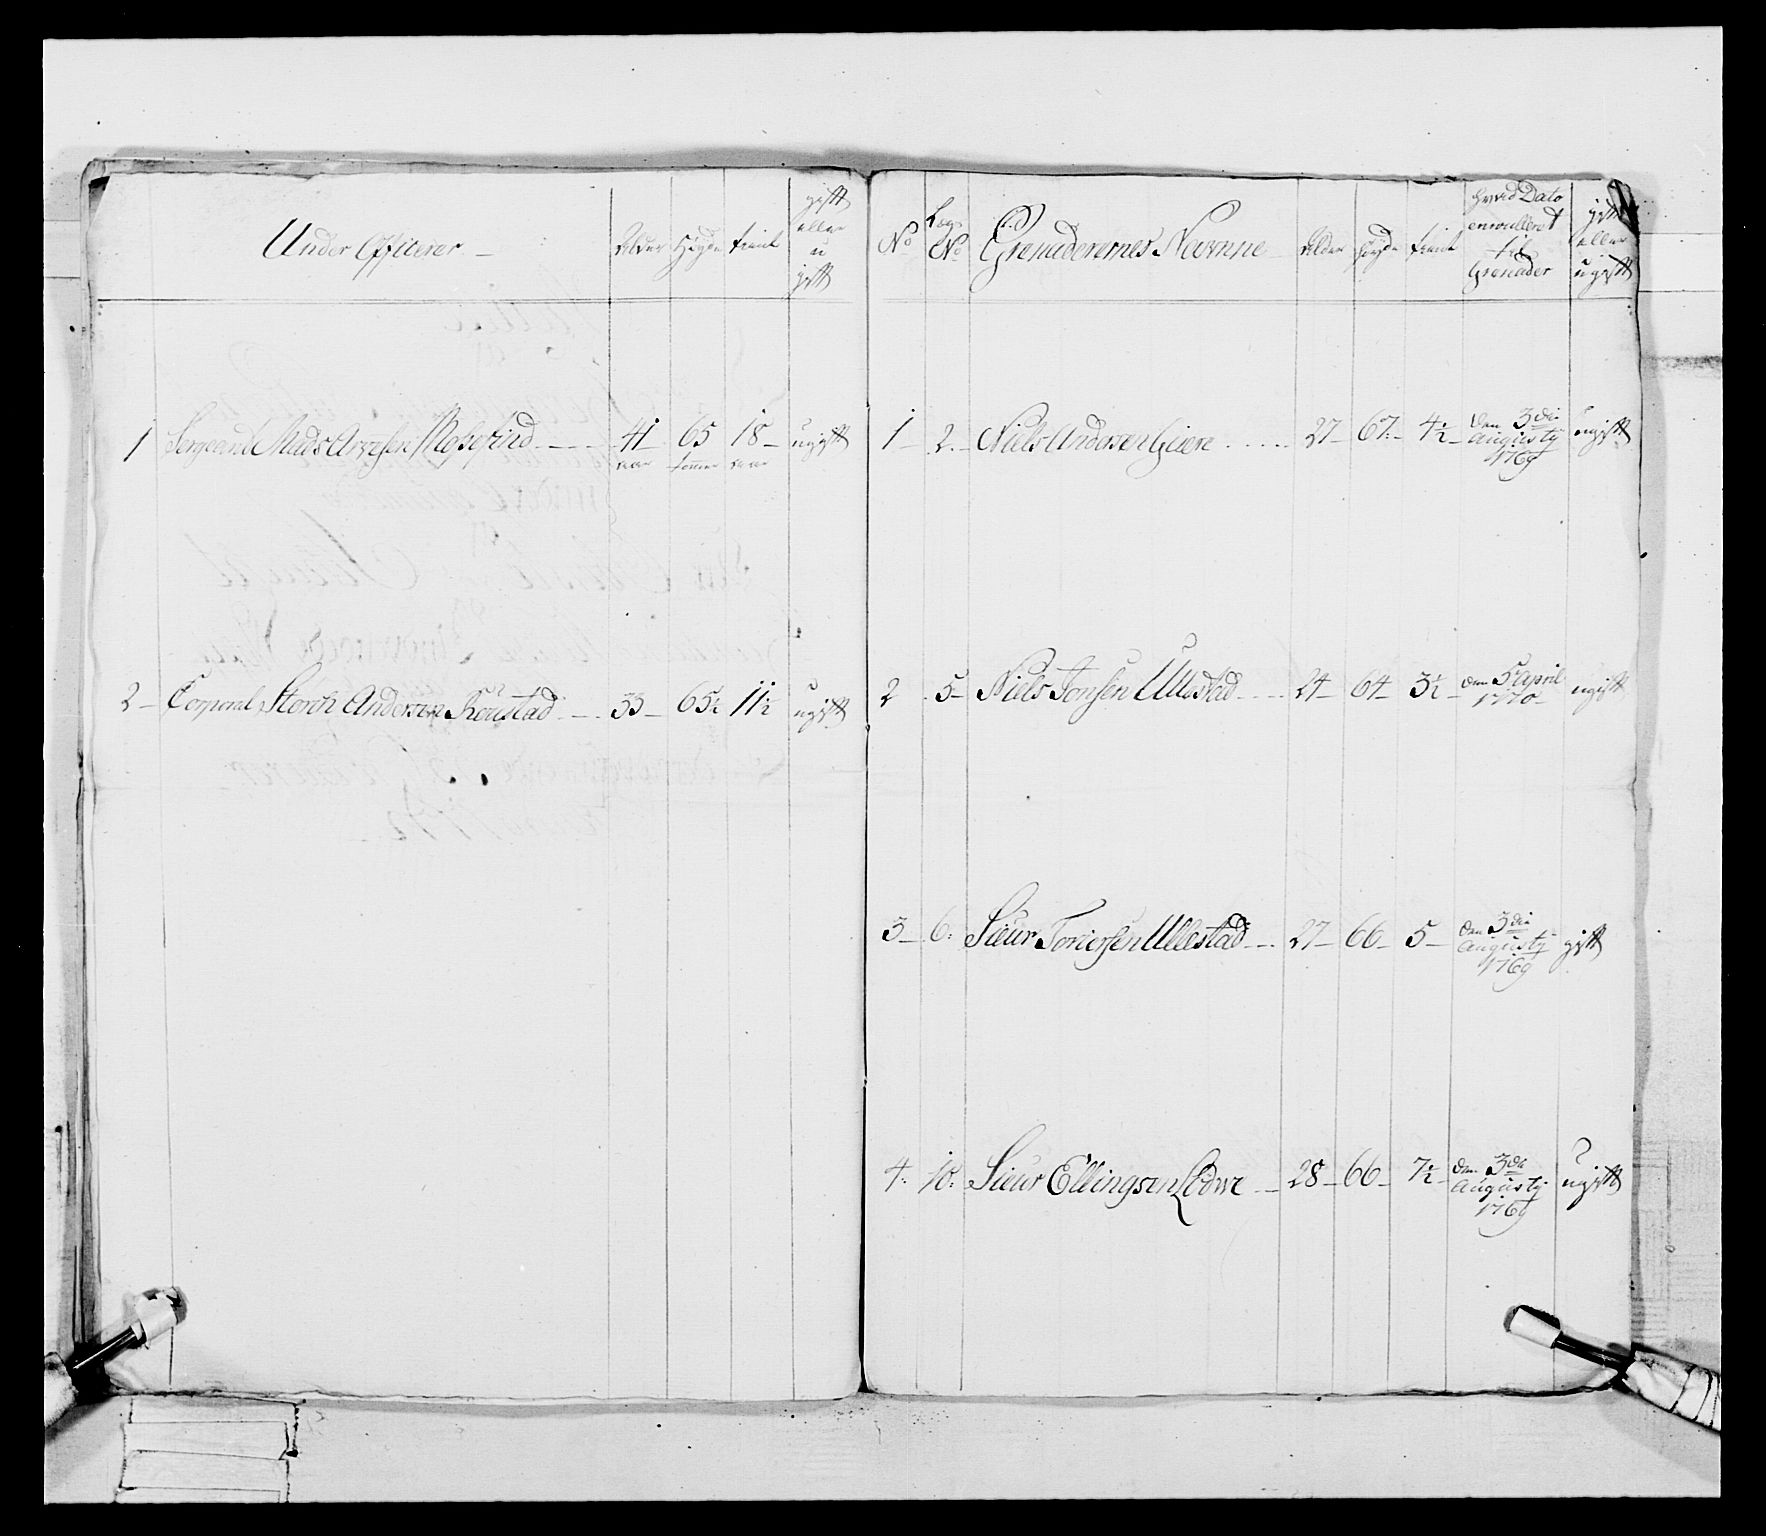 Under Officerer Alder Høyde tient gift eller u gift
1 Sergeant Mads Arvesen Mosefind 41 aar 65 tommer 18 aar ugift
2 Corporal Storch Andersen Røustad 33 65½ 11½ ugift
No Lægs No Grenaderernes Navnne Alder Høyde tient hvad Dato enroulleret til Grenader gift eller ugift
1 2 Niels Andersen Giere 27 67 4½ den 3die Augusty 1769 ugift
2 5 Niels Jonsen Ullestad 24 64 3½ den 5 April 1770 ugift
3 6 Siur Toriersen Ullestad 27 66 5 den 3die Augusty 1769 gift
4 10 Siur Ellingsen Lødwe 28 66 7½ den 3die Augusty 1769 ugift